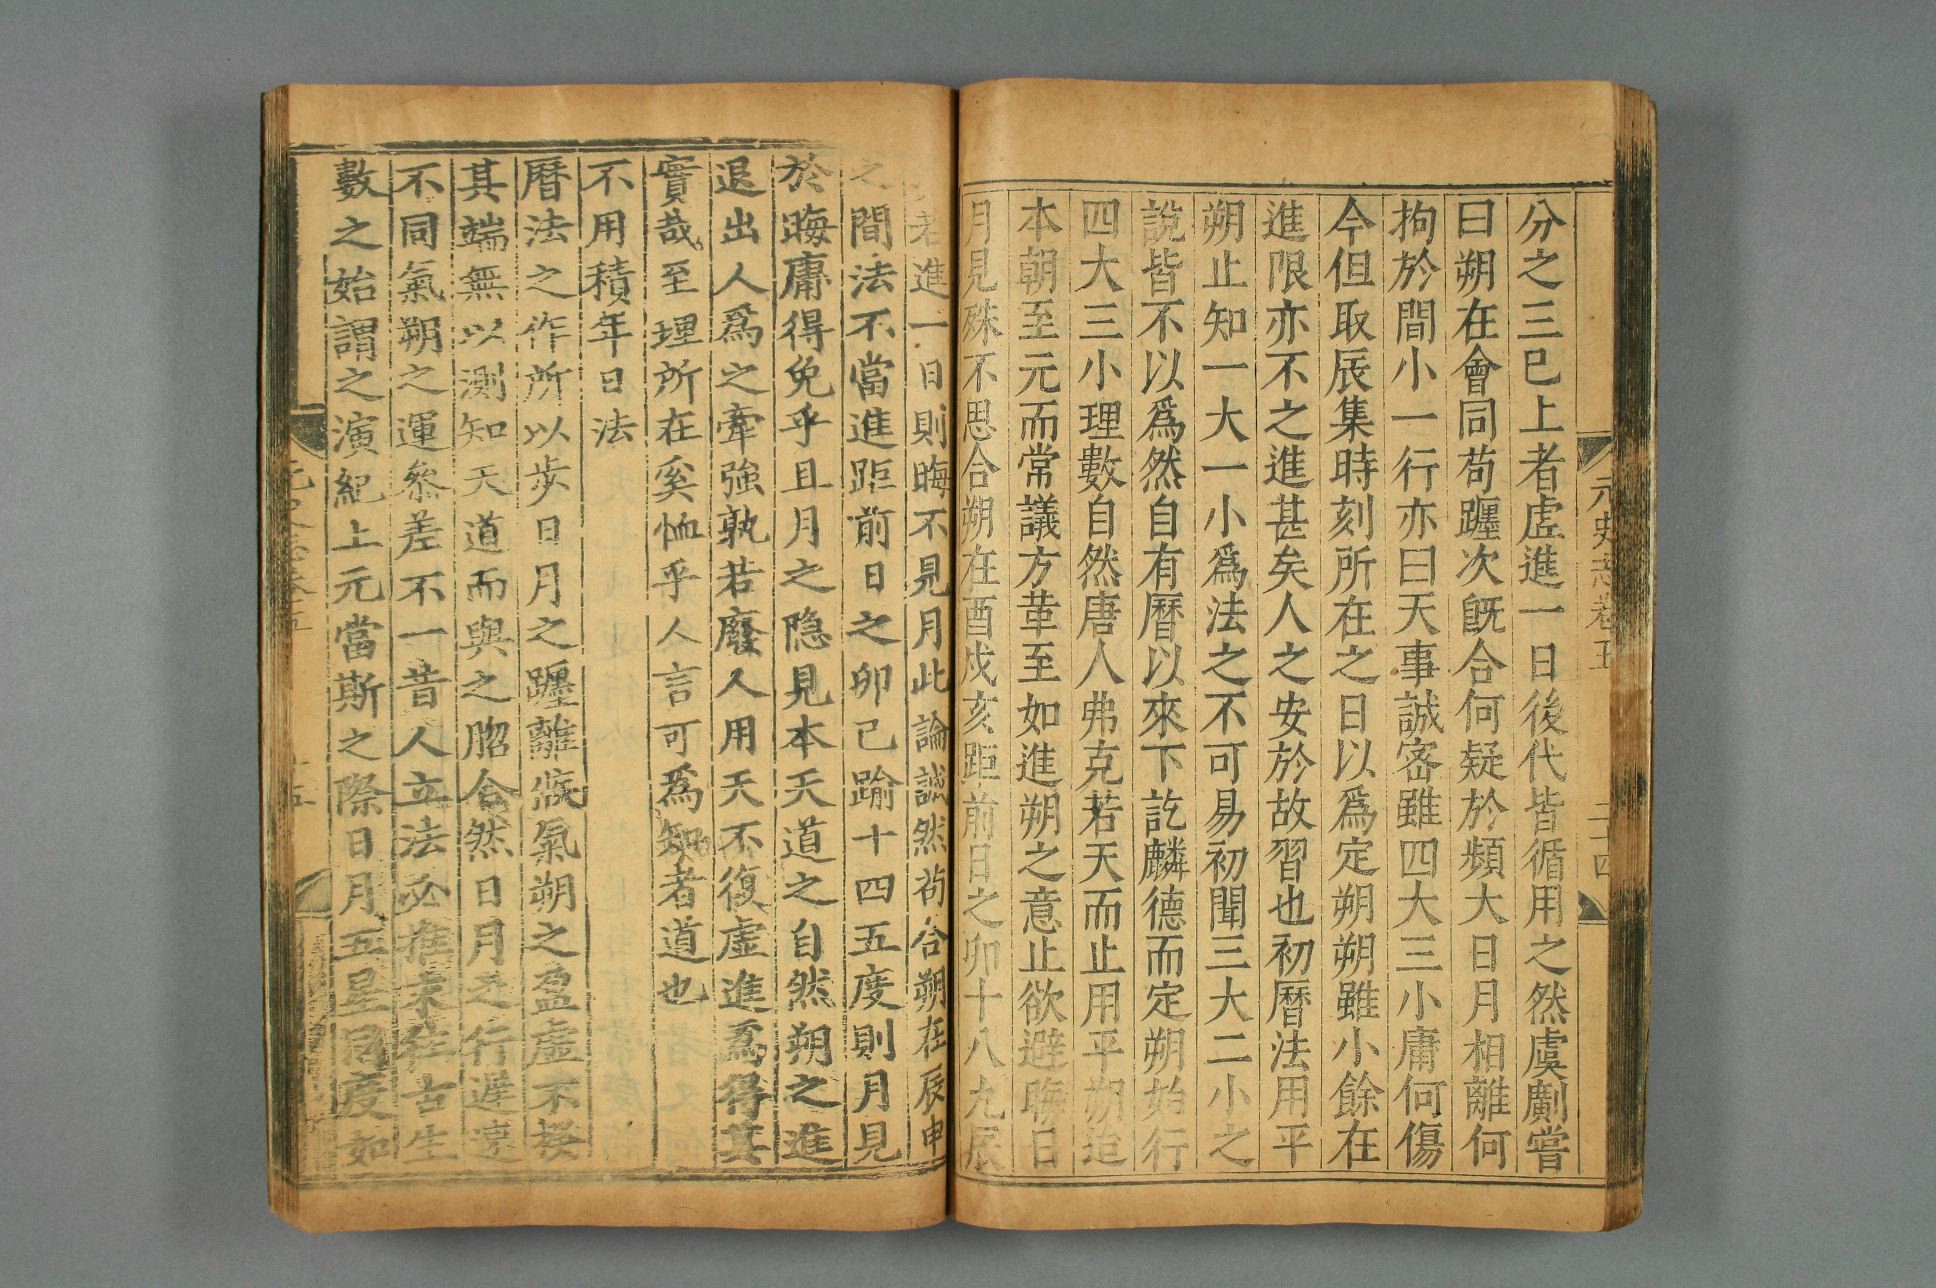 元史志卷五
二十四
分之三已上者虛進一日後代皆循用之然虞𠠎嘗
曰朔在會同苟躔次旣合何疑於頻大日月相離何
拘於間小一行亦曰天事誠密雖四大三小庸何傷
今但取辰集時刻所在之日以爲定朔朔雖小餘在
進限亦不之進甚矣人之安於故習也初曆法用平
朔止知一大一小爲法之不可易初聞三大二小之
說皆不以爲然自有曆以來下訖麟德而定朔始行
四大三小理數自然唐人弗克若天而止用平朔迨
本朝至元而常議方革至如進朔之意止欲避晦日
月見殊不思合朔在酉戌亥距前日之卯十八九辰
若進一日則晦不見月此論誠然苟合朔在辰申
之間法不當進距前日之卯已踰十四五度則月見
於晦庸得免乎且月之隐見本天道之自然朔之進
退出人爲之牽強孰若廢人用天不復虛進爲得其
實哉至理所在奚恤乎人言可爲知者道也
不用積年日法
曆法之作所以步日月之躔離𠋫氣朔之盈虛不揆
其端無以測知天道而與之脗合然日月之行遲速
不同氣朔之運叅差不一昔人立法必推求往古生
數之始謂之演紀上元當斯之際日月五星同度如
元史志卷五